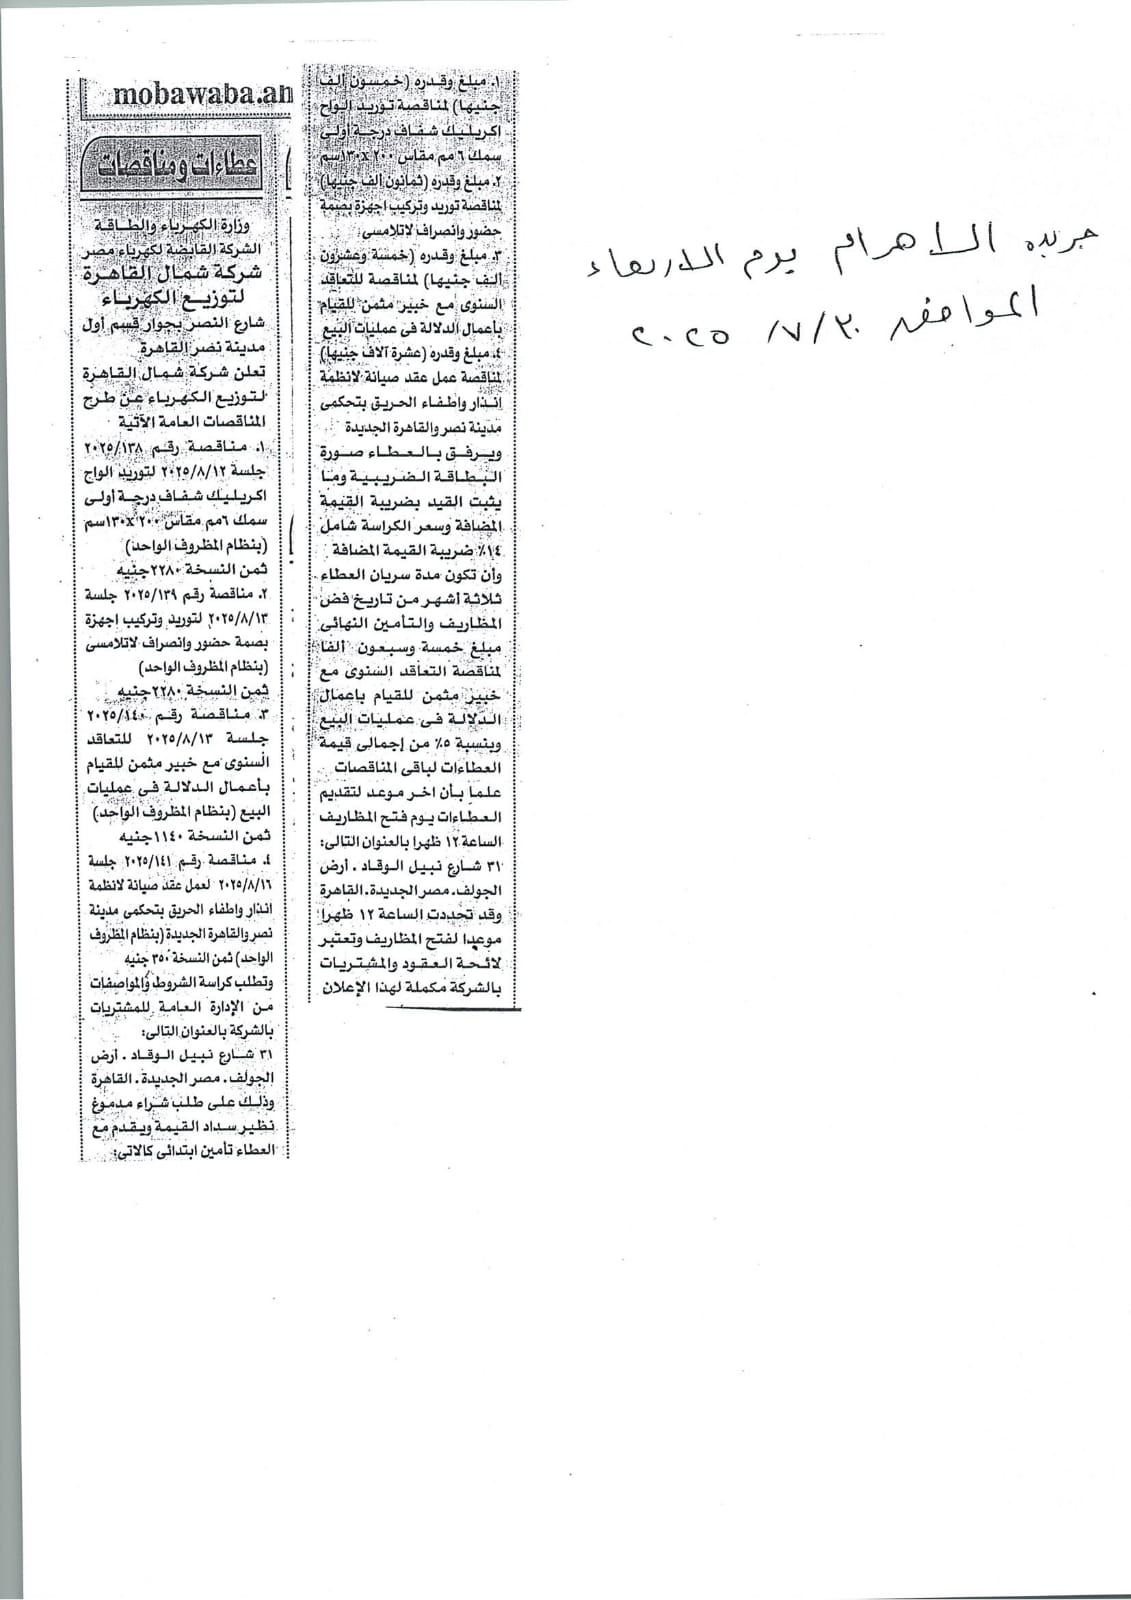 mobawaba.an
عطاءات ومناقصات
وزارة الكهرباء والطاقة
الشركة القابضة لكهرباء مصر
شركة شمال القاهرة
لتوزيع الكهرباء
شارع النصر بجوار قسم أول
مدينة نصر القاهرة
تعلن شركة شمال القاهرة
لتوزيع الكهرباء عن طرح
المناقصات العامة الآتية
١. مناقصة رقم ٢٠٢٥/١٣٨
جلسة ٢٠٢٥/٨/١٢ لتوريد الواح
اكريليك شفاف درجة أولى
سمك ٦مم مقاس ٢٠٠×١٣٠سم
(بنظام المظروف الواحد)
ثمن النسخة ٢٢٨٠جنيه
٢. مناقصة رقم ٢٠٢٥/١٣٩ جلسة
٢٠٢٥/٨/١٣ لتوريد وتركيب اجهزة
بصمة حضور وانصراف لاتلامسى
(بنظام المظروف الواحد)
ثمن النسخة ٢٢٨٠جنيه
٣. مناقصة رقم ٢٠٢٥/١٤٠
جلسة ٢٠٢٥/٨/١٣ للتعاقد
السنوى مع خبير مثمن للقيام
بأعمال الدلالة فى عمليات
البيع (بنظام المظروف الواحد)
ثمن النسخة ١١٤٠جنيه
٤. مناقصة رقم ٢٠٢٥/١٤١ جلسة
٢٠٢٥/٨/١٦ لعمل عقد صيانة لانظمة
انذار واطفاء الحريق بتحكمى مدينة
نصر والقاهرة الجديدة (بنظام المظروف
الواحد) ثمن النسخة ٣٥٠ جنيه
وتطلب كراسة الشروط والمواصفات
من الإدارة العامة للمشتريات
بالشركة بالعنوان التالى:
٣١ شارع نبيل الوقاد . أرض
الجولف. مصر الجديدة. القاهرة
وذلك على طلب شراء مدموغ
نظير سداد القيمة ويقدم مع
العطاء تأمين ابتدائى كالاتى:
١. مبلغ وقدره (خمسون ألف
جنيها) لمناقصة توريد الواح
اكريليك شفاف درجة أولى
سمك ٦مم مقاس ٢٠٠×١٣٠سم
٢. مبلغ وقدره (ثمانون ألف جنيها)
لمناقصة توريد وتركيب اجهزة بصمة
حضور وانصراف لاتلامسى
٣. مبلغ وقدره (خمسة وعشرون
ألف جنيها) لمناقصة للتعاقد
السنوى مع خبير مثمن للقيام
بأعمال الدلالة فى عمليات البيع
٤. مبلغ وقدره (عشرة آلاف جنيها)
لمناقصة عمل عقد صيانة لانظمة
إنذار وإطفاء الحريق بتحكمى
مدينة نصر والقاهرة الجديدة
ويرفق بالعطاء صورة
البطاقة الضريبية وما
يثبت القيد بضريبة القيمة
المضافة وسعر الكراسة شامل
١٤٪ ضريبة القيمة المضافة
وأن تكون مدة سريان العطاء
ثلاثة أشهر من تاريخ فض
المظاريف والتأمين النهائى
مبلغ خمسة وسبعون ألفا
لمناقصة التعاقد السنوى مع
خبير مثمن للقيام باعمال
الدلالة فى عمليات البيع
وبنسبة ٥٪ من إجمالى قيمة
العطاءات لباقى المناقصات
علما بأن اخر موعد لتقديم
العطاءات يوم فتح المظاريف
الساعة ١٢ ظهرا بالعنوان التالى:
٣١ شارع نبيل الوقاد . أرض
الجولف. مصر الجديدة. القاهرة
وقد تحددت الساعة ١٢ ظهرا
موعدا لفتح المظاريف وتعتبر
لائحة العقود والمشتريات
بالشركة مكملة لهذا الإعلان
جريده الاهرام يوم الاربعاء
الموافق ٢٠٢٥/٧/٣٠